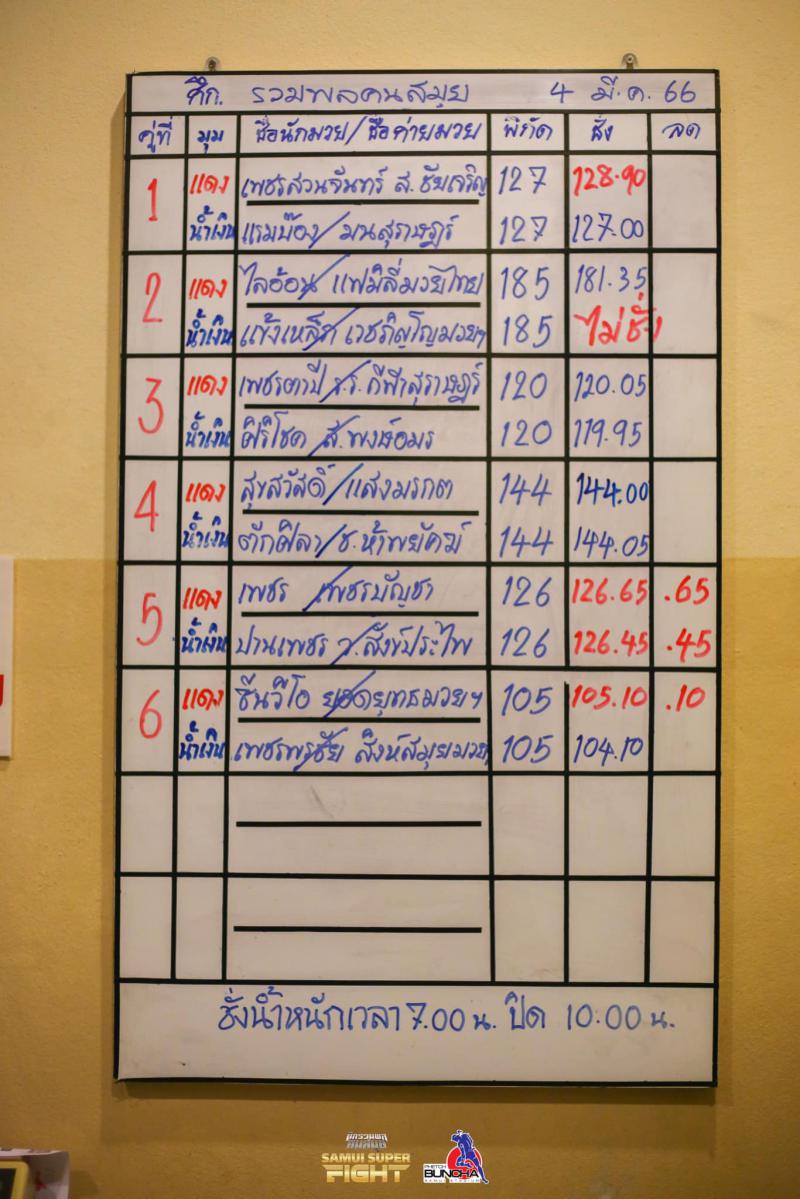 ศึก. รวมพลคนสมุย 4 มี.ค. 66
คู่ที่ มุม ชื่อนักมวย/ชื่อค่ายมวย พิกัด ชั่ง ลด
1 แดง เพชรสวนจันทร์ ส.ชัยเจริญ 127 128.90
น้ำเงิน แรมบ๊อง/มนสุราษฎร์ 127 127.00
2 แดง ไลอ้อน แฟมิลี่มวยไทย 185 181.35
น้ำเงิน แข้งเหล็ก 185 ไม่ชั่ง
3 แดง เพชรตาปี ส.ร.กีฬาสุราษฎร์ 120 120.05
น้ำเงิน ศิริโชค/ส.พงษ์อมร 120 119.95
4 แดง สุขสวัสดิ์/แสงมรกต 144 144.00
น้ำเงิน ตักศิลา/ช.ห้าพยัคฆ์ 144 144.05
5 แดง เพชร/เพชรบัญชา 126 126.65 .65
น้ำเงิน ปานเพชร ว.สังข์ประไพ 126 126.45 .45
6 แดง ซีนวีโอ ยอดยุทธมวยฯ 105 105.10 .10
น้ำเงิน เพชรพรชัย สิงห์สมุยมวย 105 104.10
ชั่งน้ำหนักเวลา 7.00 น. ปิด 10.00 น.
SAMUI SUPER
FIGHT
PHETCH
BUNCHA